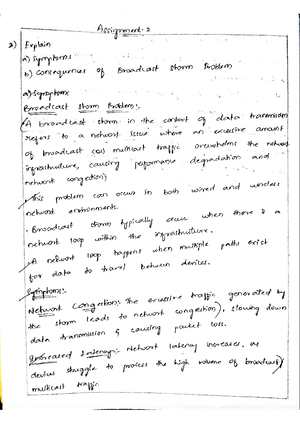 Assignment-2
2) Explain
a) Symptoms
b) Consequences of Broadcast Storm Problem
a) Symptoms
Broadcast Storm Problem:-
A broadcast storm in the context of data transmission
refers to a network issue where an excessive amount
of broadcast (or) multicast traffic overwhelms the network
infrastructure, causing performance degradation and
network congestion)
This problem can occur in both wired and wireless
network environments.
Broadcast storm typically occur when there is a
network loop within the infrastructure.
A network loop happens when multiple paths exist
for data to travel between devices.
Symptoms:-
Network Congestion: The excessive traffic generated by
the storm leads to network congestion), slowing down
data transmission & causing packet loss.
Increased Latency:- Network latency increases, as
devices struggle to process the high volume of broadcast/
multicast traffic